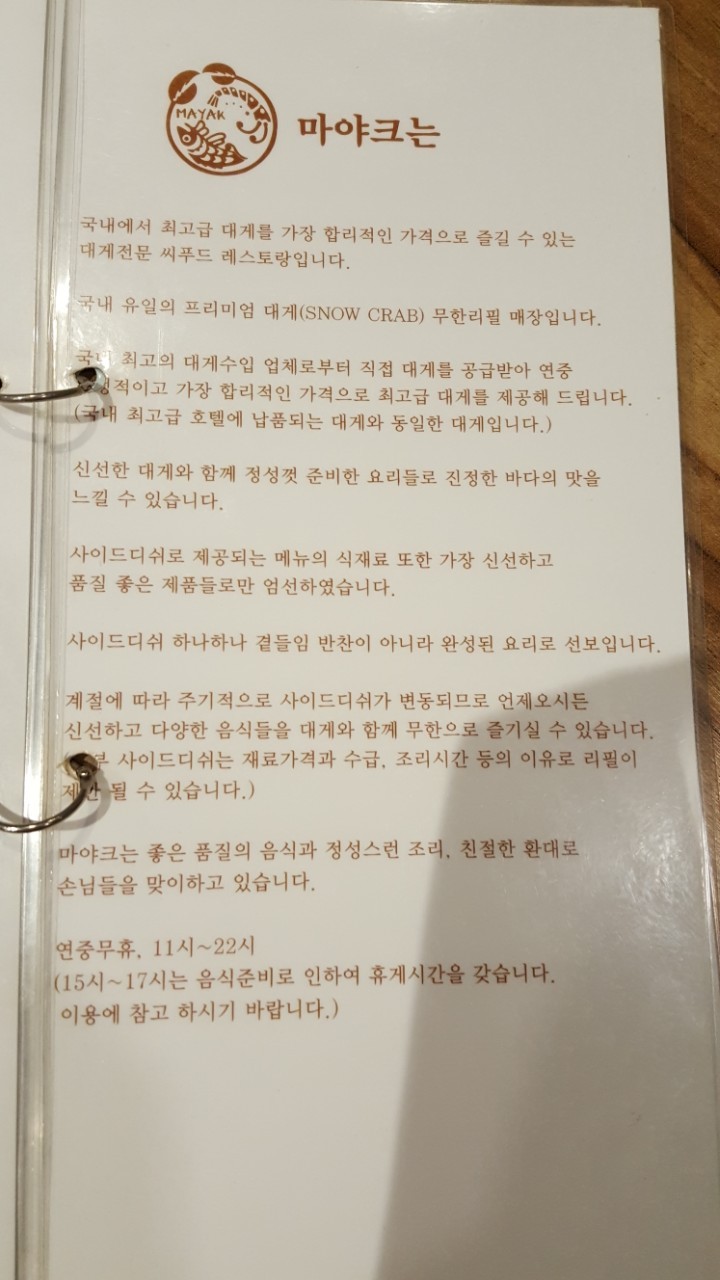 MAYAK
마야크는
국내에서 최고급 대게를 가장 합리적인 가격으로 즐길 수 있는
대게전문 씨푸드 레스토랑입니다.
국내 유일의 프리미엄 대게(SNOW CRAB) 무한리필 매장입니다.
국내 최고의 대게수입 업체로부터 직접 대게를 공급받아 연중
가장 합리적인 가격으로 최고급 대게를 제공해 드립니다.
(국내 최고급 호텔에 납품되는 대게와 동일한 대게입니다.)
신선한 대게와 함께 정성껏 준비한 요리들로 진정한 바다의 맛을
느낄 수 있습니다.
사이드디쉬로 제공되는 메뉴의 식재료 또한 가장 신선하고
품질 좋은 제품들로만 엄선하였습니다.
사이드디쉬 하나하나 곁들임 반찬이 아니라 완성된 요리로 선보입니다.
계절에 따라 주기적으로 사이드디쉬가 변동되므로 언제오시든
신선하고 다양한 음식들을 대게와 함께 무한으로 즐기실 수 있습니다.
사이드디쉬는 재료가격과 수급, 조리시간 등의 이유로 리필이
제한 될 수 있습니다.)
마야크는 좋은 품질의 음식과 정성스런 조리, 친절한 환대로
손님들을 맞이하고 있습니다.
연중무휴, 11시~22시
(15시~17시는 음식준비로 인하여 휴게시간을 갖습니다.
이용에 참고 하시기 바랍니다.)